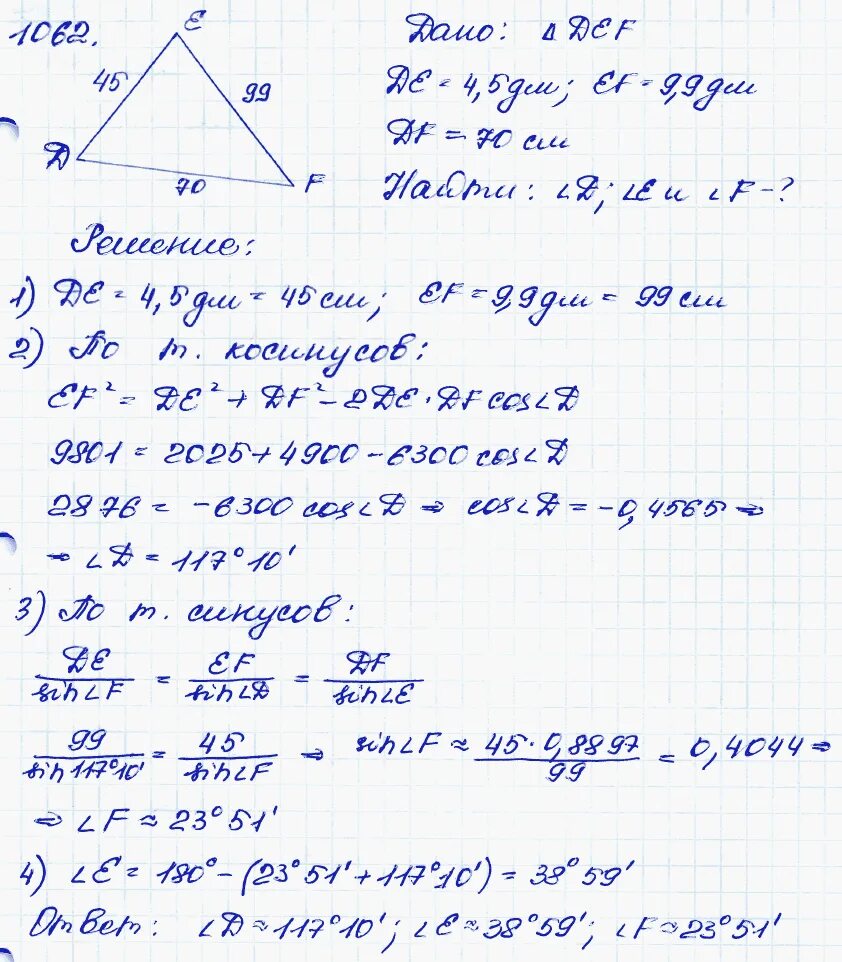 1062.
E
45
99
D
70
F
Дано: △ DEF
DE = 4,5 дм; EF = 9,9 дм
DF = 70 см
Найти: ∠D; ∠E и ∠F - ?
Решение:
1) DE = 4,5 дм = 45 см; EF = 9,9 дм = 99 см
2) По т. косинусов:
EF² = DE² + DF² - 2DE · DF cos∠D
9801 = 2025 + 4900 - 6300 cos∠D
2876 = -6300 cos∠D ⇒ cos∠D = -0,4565 ⇒
⇒ ∠D = 117°10'
3) По т. синусов:
DE/sin∠F = EF/sin∠D = DF/sin∠E
99/sin117°10' = 45/sin∠F ⇒ sin∠F ≈ 45·0,8897/99 = 0,4044 ⇒
⇒ ∠F ≈ 23°51'
4) ∠E = 180° - (23°51' + 117°10') = 38°59'
Ответ: ∠D ≈ 117°10'; ∠E ≈ 38°59'; ∠F ≈ 23°51'